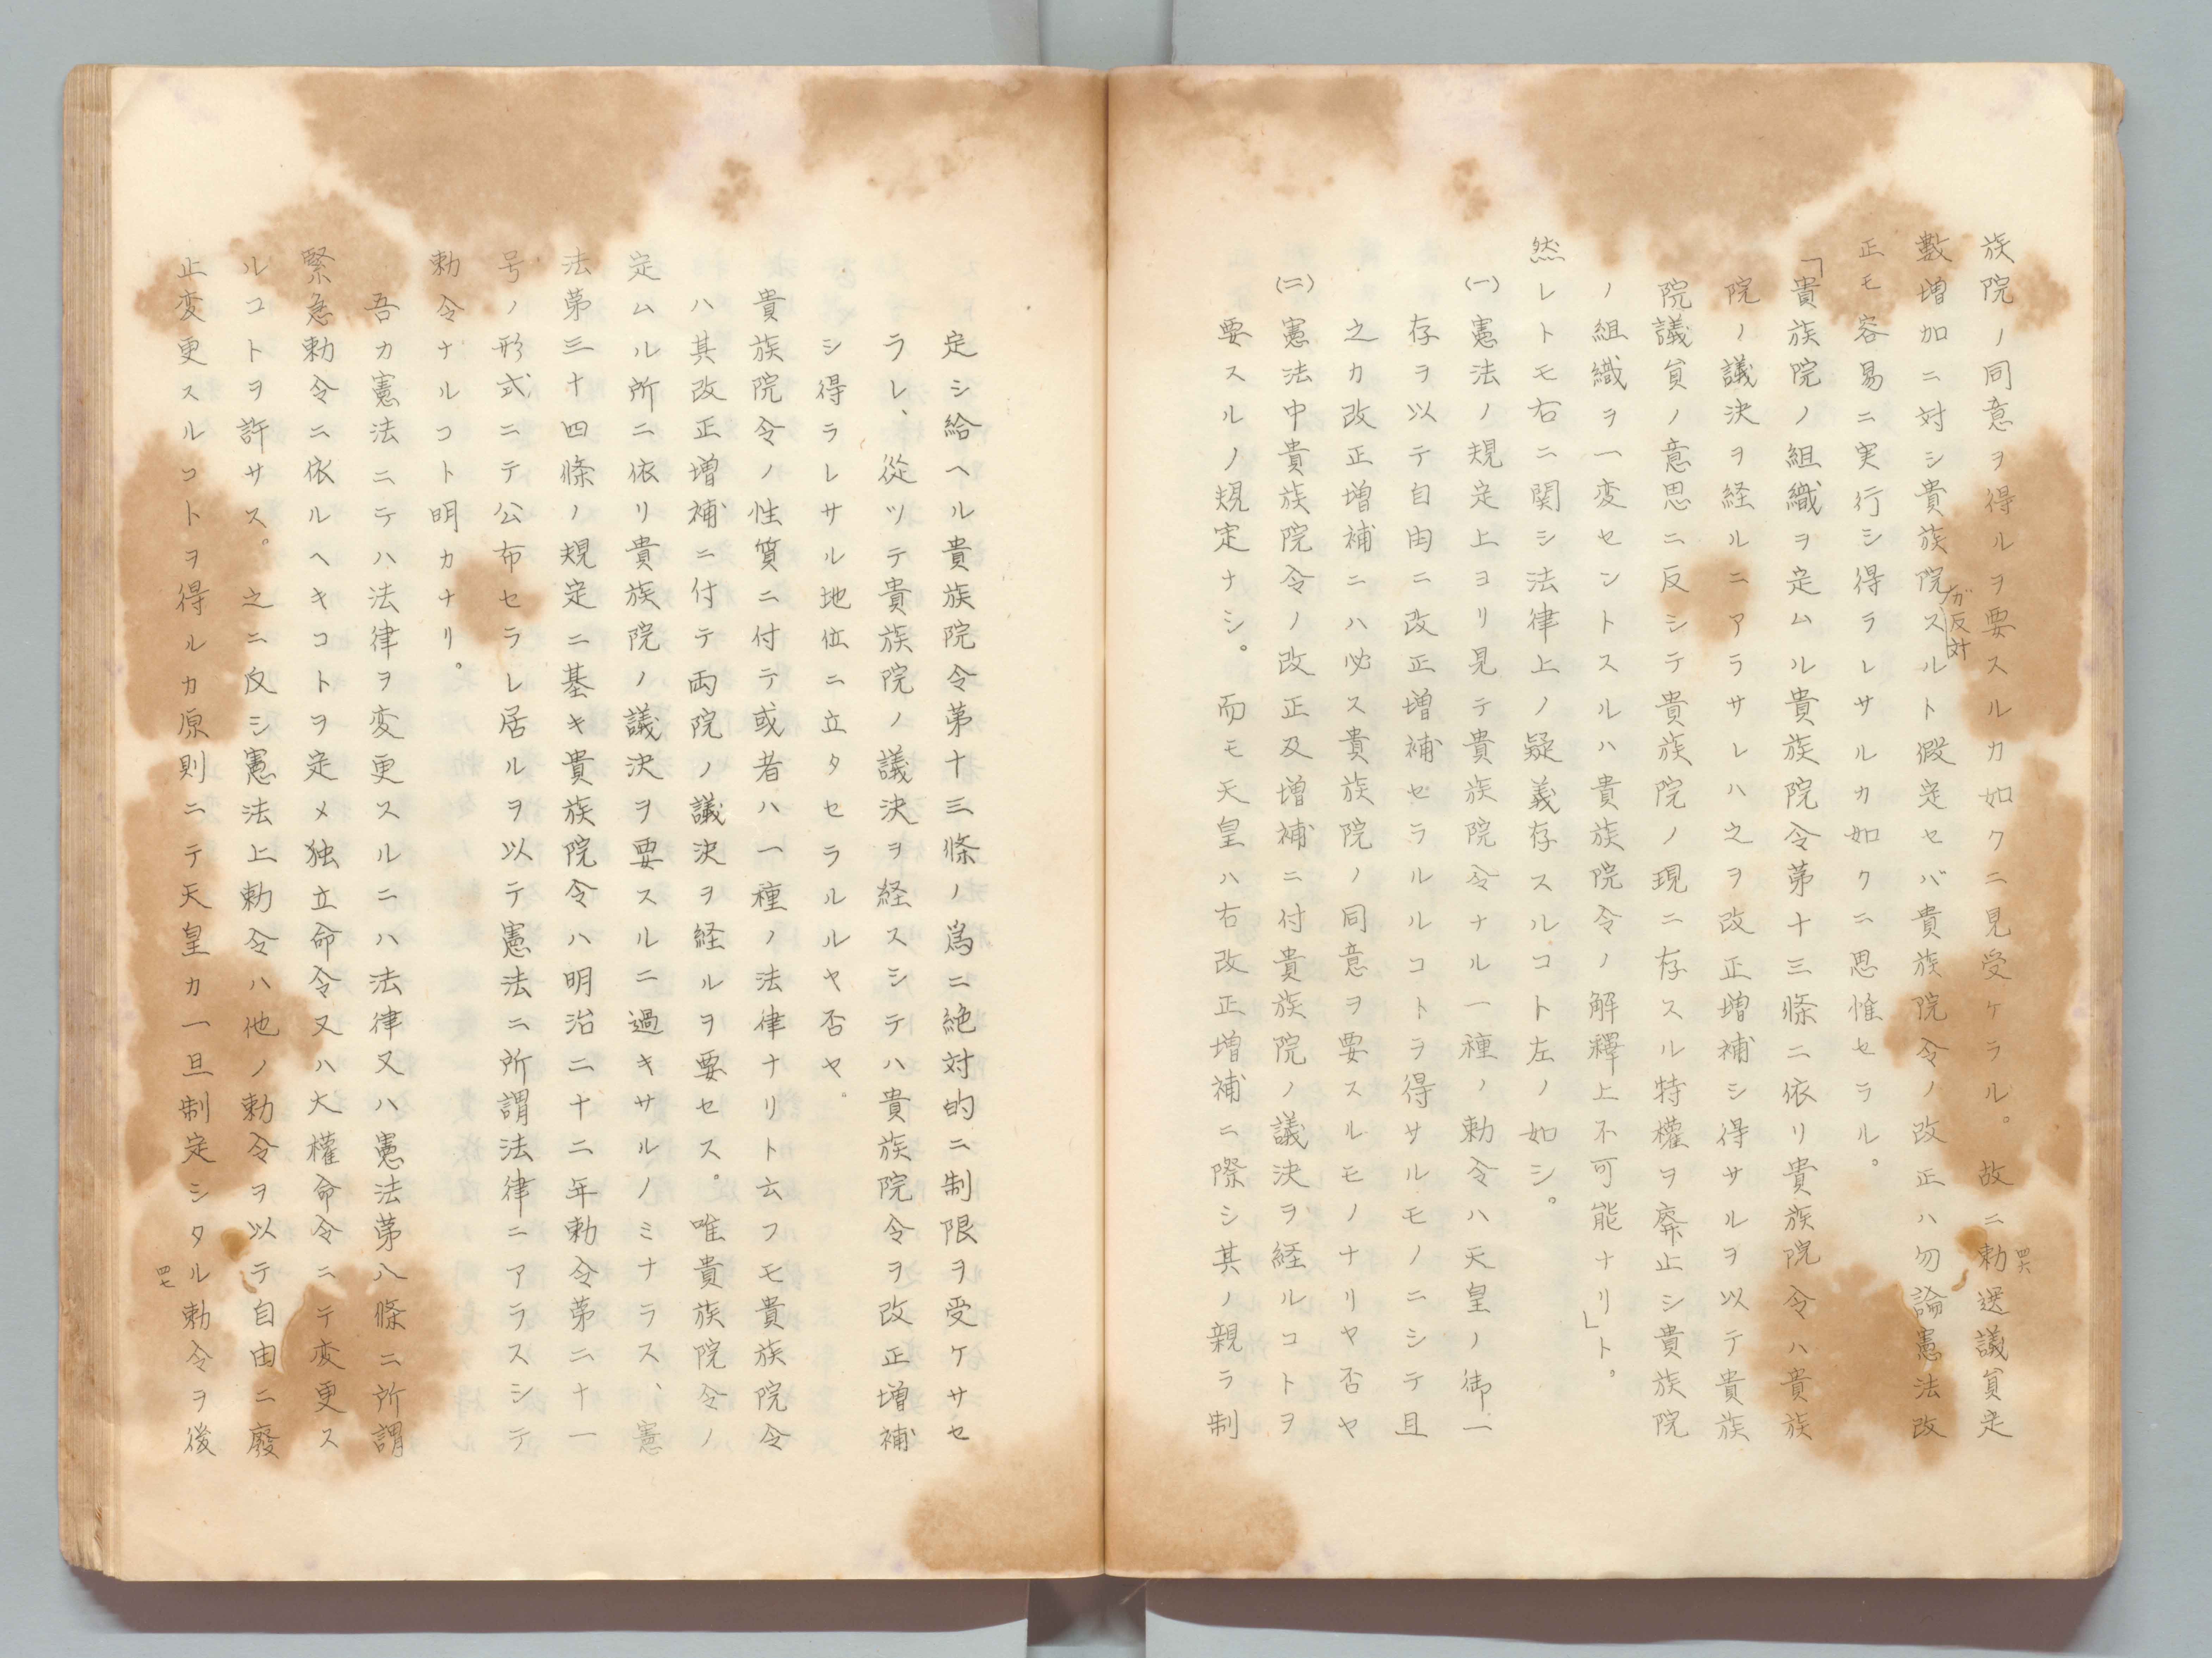 族院ノ同意ヲ得ルヲ要スルカ如クニ見受ケラル。故ニ勅選議員定
数増加ニ対シ貴族院ガ反対スルト假定セバ貴族院令ノ改正ハ勿論憲法改
正モ容易ニ実行シ得ラレサルカ如クニ思惟セラル。
「貴族院ノ組織ヲ定ムル貴族院令第十三條ニ依リ貴族院令ハ貴族
院ノ議決ヲ経ルニアラサレハ之ヲ改正増補シ得サルヲ以テ貴族
院議員ノ意思ニ反シテ貴族院ノ現ニ存スル特權ヲ廃止シ貴族院
ノ組織ヲ一変セントスルハ貴族院令ノ解釋上不可能ナリ」ト。
然レトモ右ニ関シ法律上ノ疑義存スルコト左ノ如シ。
(一)憲法ノ規定上ヨリ見テ貴族院令ナル一種ノ勅令ハ天皇ノ御一
存ヲ以テ自由ニ改正増補セラルルコトヲ得サルモノニシテ且
之カ改正増補ニハ必ス貴族院ノ同意ヲ要スルモノナリヤ否ヤ
(二)憲法中貴族院令ノ改正及増補ニ付貴族院ノ議決ヲ経ルコトヲ
要スルノ規定ナシ。而モ天皇ハ右改正増補ニ際シ其ノ親ラ制
四六
定シ給ヘル貴族院令第十三條ノ爲ニ絶対的ニ制限ヲ受ケサセ
ラレ、從ツテ貴族院ノ議決ヲ経スシテハ貴族院令ヲ改正増補
シ得ラレサル地位ニ立タセラルルヤ否ヤ。
貴族院令ノ性質ニ付テ或者ハ一種ノ法律ナリト云フモ貴族院令
ハ其改正増補ニ付テ両院ノ議決ヲ経ルヲ要セス。唯貴族院令ノ
定ムル所ニ依リ貴族院ノ議決ヲ要スルニ過キサルノミナラス、憲
法第三十四條ノ規定ニ基キ貴族院令ハ明治二十二年勅令第二十一
号ノ形式ニテ公布セラレ居ルヲ以テ憲法ニ所謂法律ニアラスシテ
勅令ナルコト明カナリ。
吾カ憲法ニテハ法律ヲ変更スルニハ法律又ハ憲法第八條ニ所謂
緊急勅令ニ依ルヘキコトヲ定メ独立命令又ハ大權命令ニテ変更ス
ルコトヲ許サス。之ニ反シ憲法上勅令ハ他ノ勅令ヲ以テ自由ニ廢
止変更スルコトヲ得ルカ原則ニテ天皇カ一旦制定シタル勅令ヲ後
四七